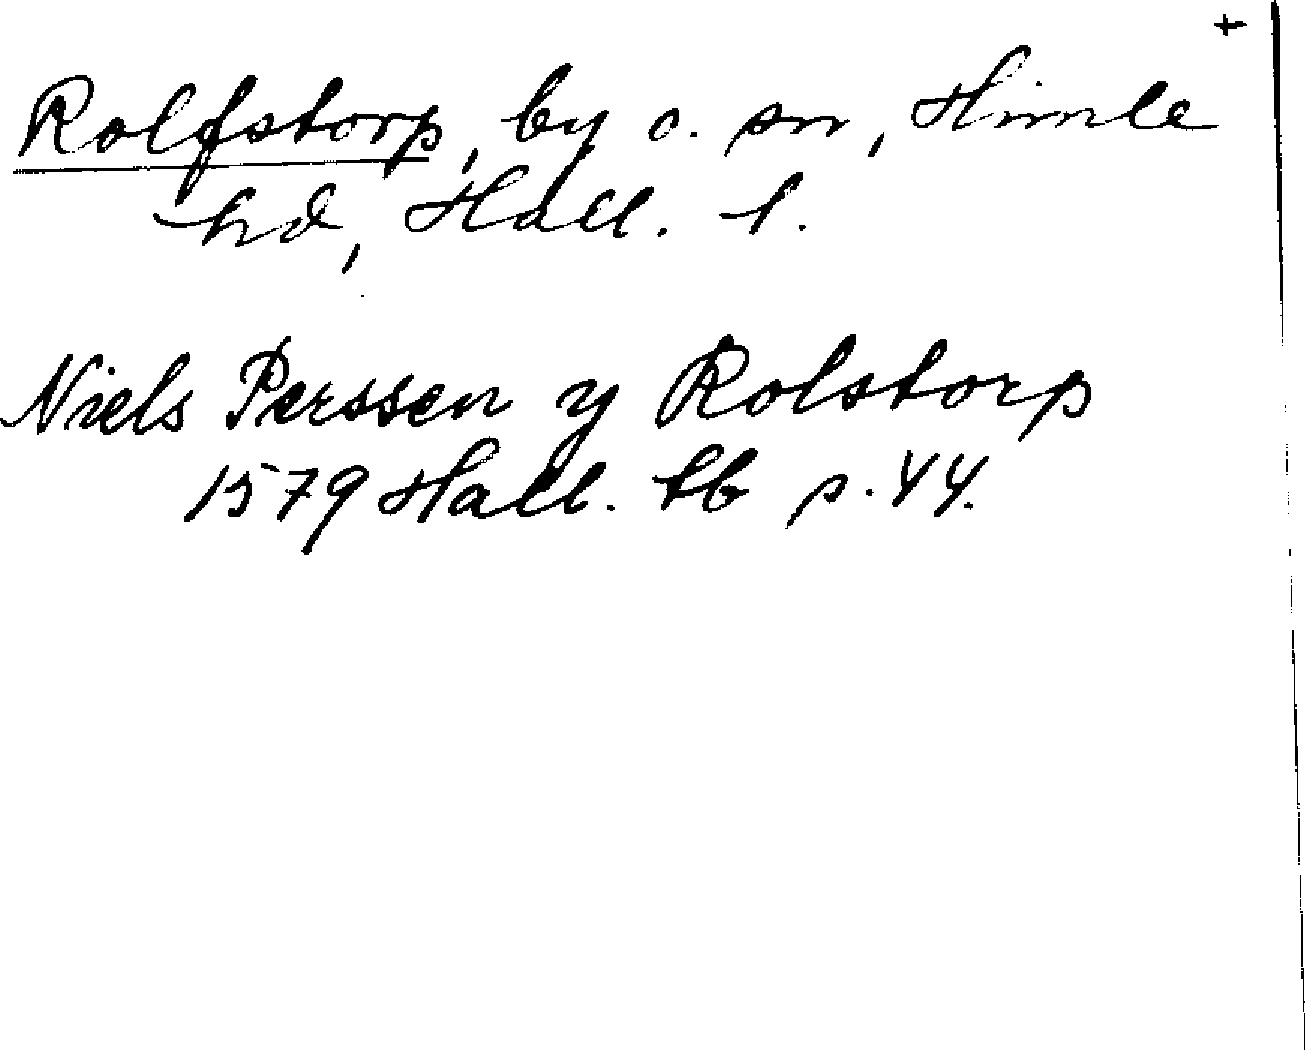 +
Rolfstorp, by o. sn, Himle
hd, Hall. l.
Niels Perssen y Rolstorp
1579 Hall. tb s. 44.